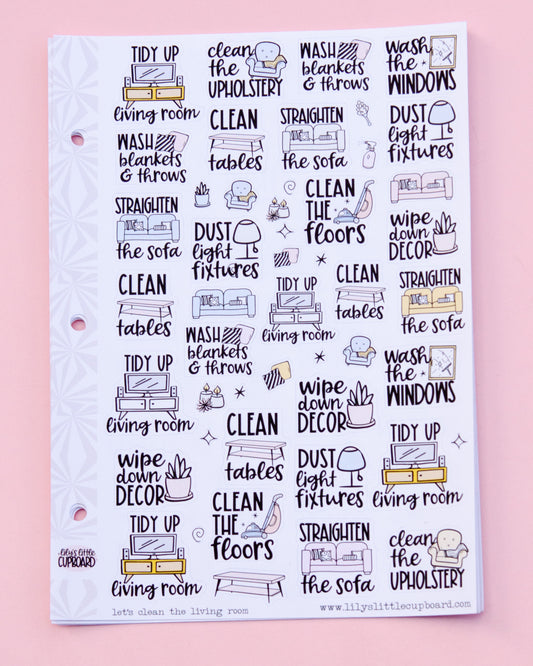 TIDY UP
living room
clean
the
UPHOLSTERY
WASH
blankets
& throws
wash
the
WINDOWS
WASH
blankets
& throws
CLEAN
tables
STRAIGHTEN
the sofa
DUST
light
fixtures
STRAIGHTEN
the sofa
DUST
light
fixtures
CLEAN
THE
floors
wipe
down
DECOR
CLEAN
tables
WASH
blankets
& throws
TIDY UP
living room
CLEAN
tables
STRAIGHTEN
the sofa
TIDY UP
living room
CLEAN
tables
wipe
down
DECOR
wash
the
WINDOWS
wipe
down
DECOR
CLEAN
THE
floors
DUST
light
fixtures
TIDY UP
living room
TIDY UP
living room
STRAIGHTEN
the sofa
clean
the
UPHOLSTERY
lily's little
CUPBOARD
let's clean the living room
www.lilyslittlecupboard.com